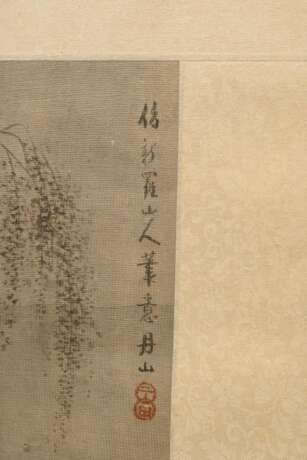 倣新羅山人筆意丹山